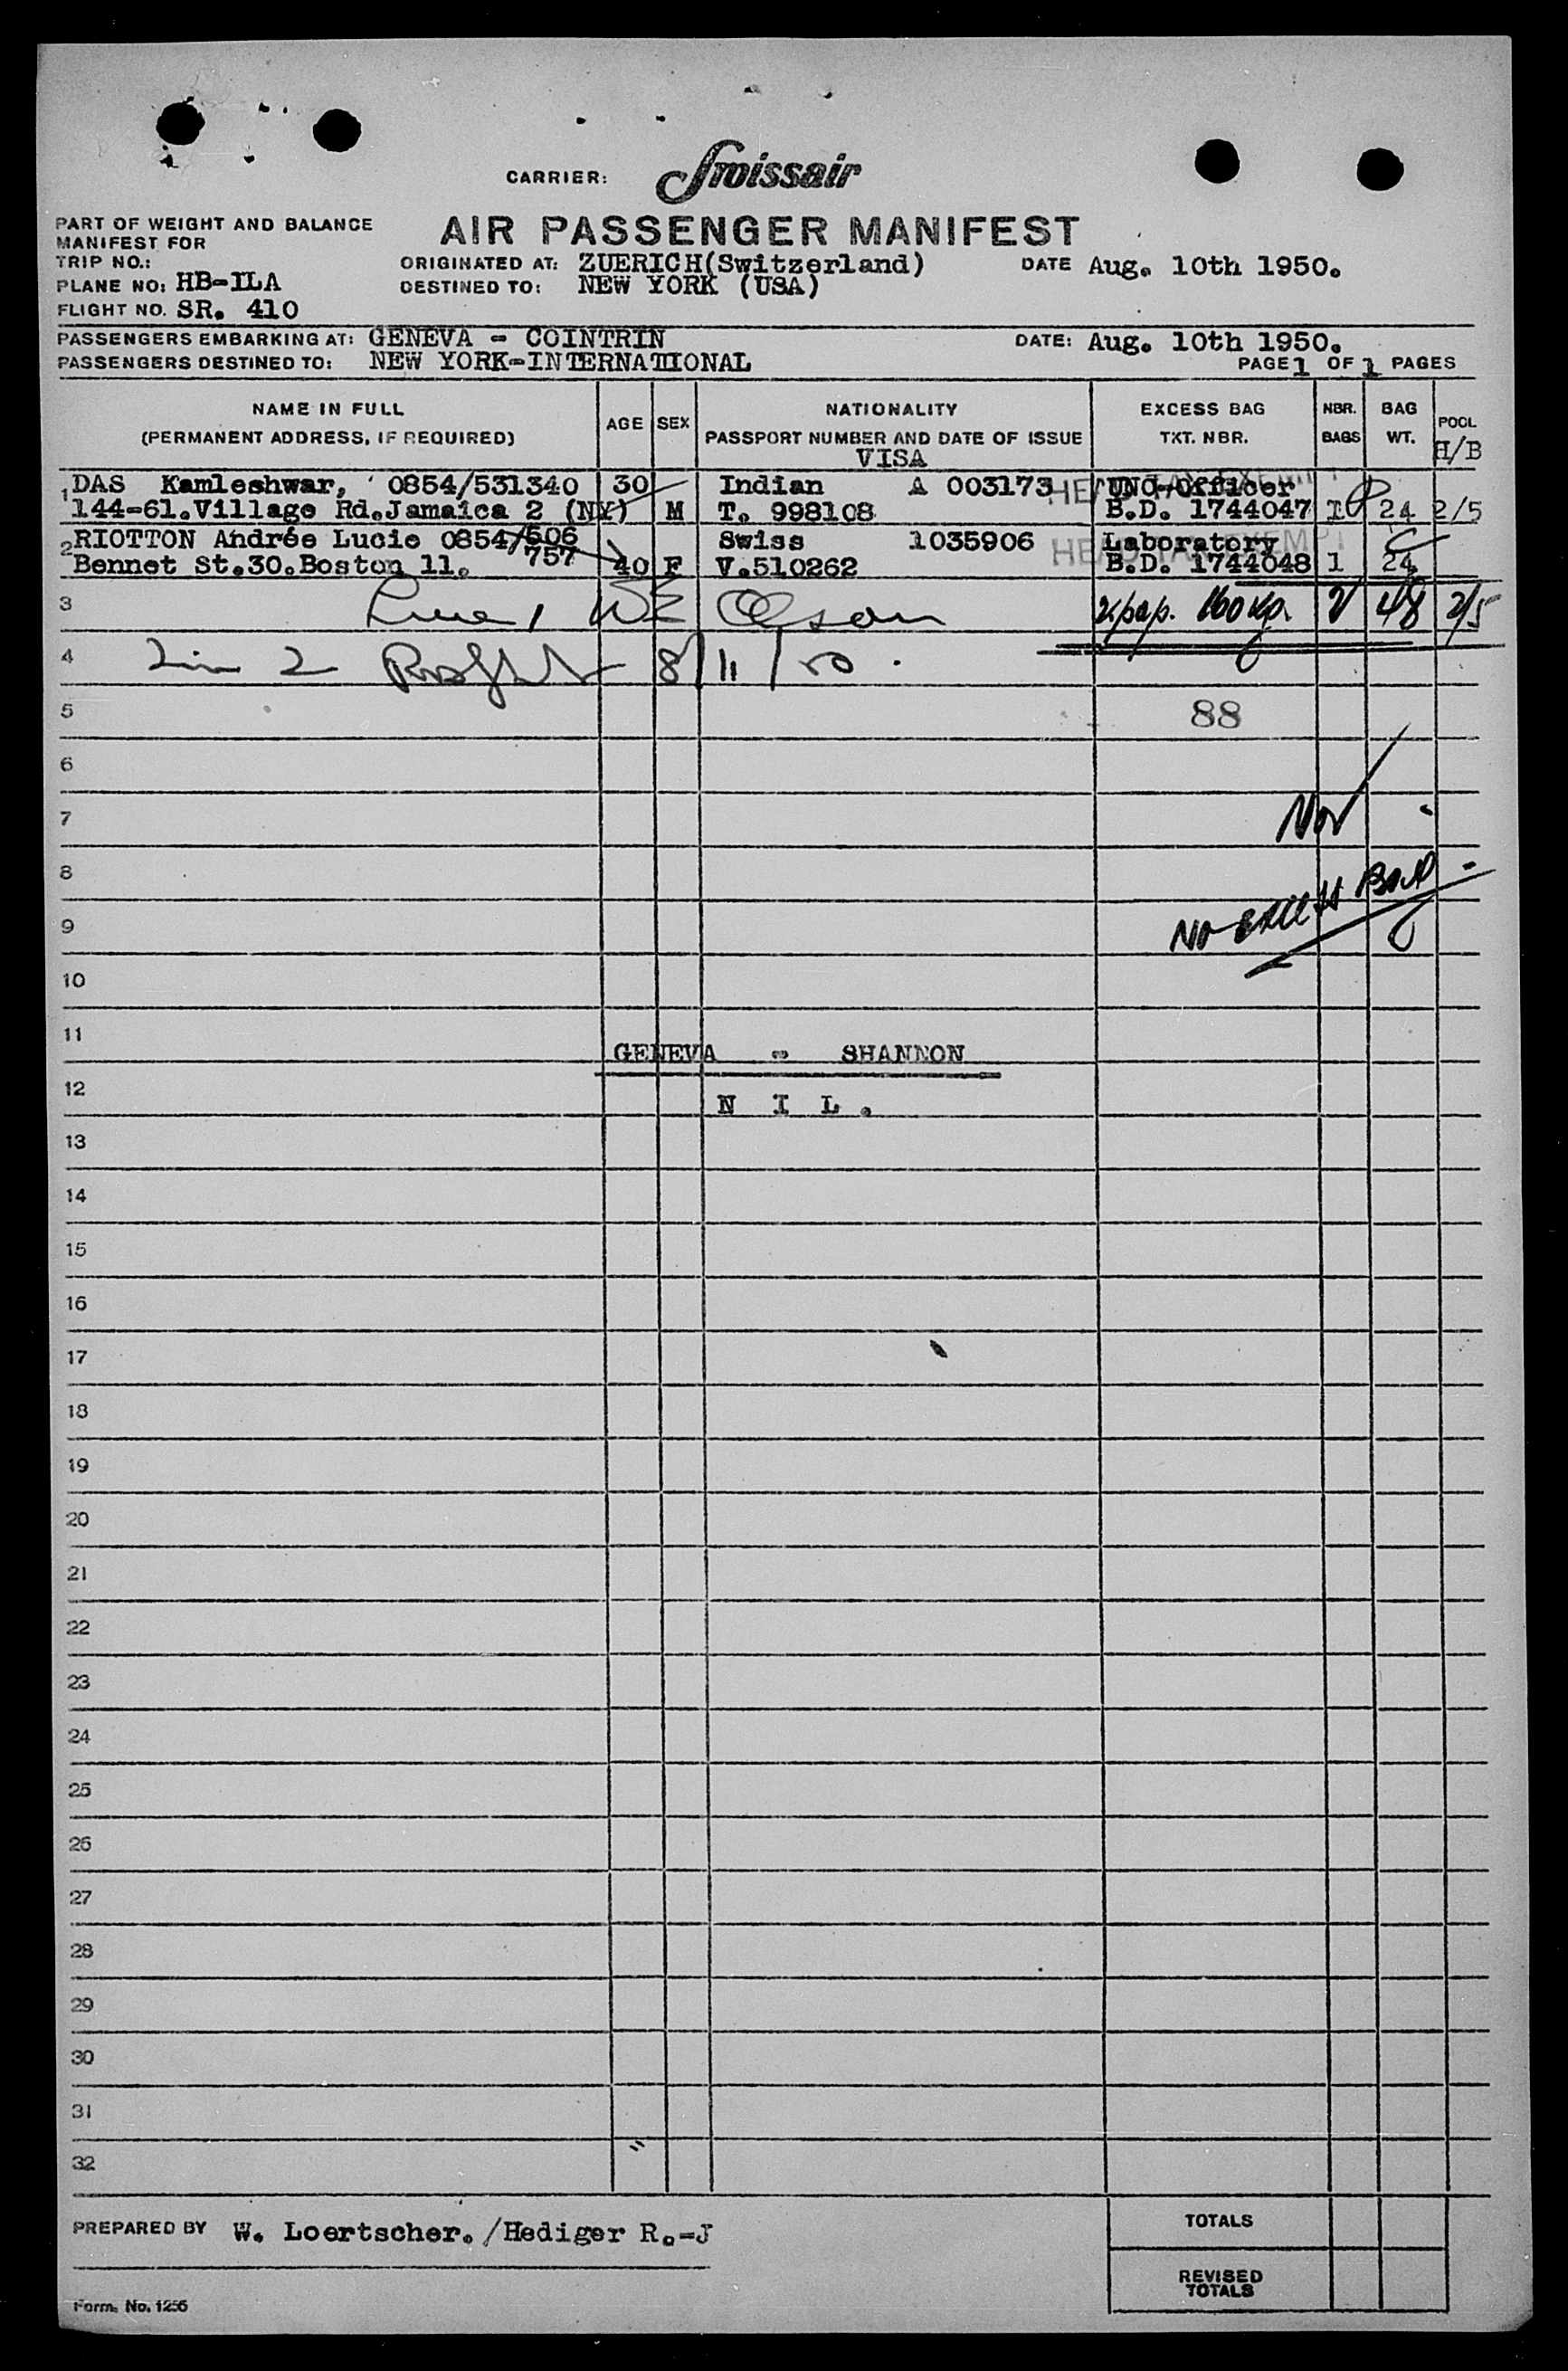 CARRIER: Swissair
PART OF WEIGHT AND BALANCE
MANIFEST FOR
AIR PASSENGER MANIFEST
TRIP NO.:
ORIGINATED AT: ZUERICH(Switzerland) DATE Aug. 10th 1950.
PLANE NO: HB-ILA
DESTINED TO: NEW YORK (USA)
FLIGHT NO. SR. 410
PASSENGERS EMBARKING AT: GENEVA - COINTRIN DATE: Aug. 10th 1950.
PASSENGERS DESTINED TO: NEW YORK-INTERNATIONAL PAGE 1 OF 1 PAGES
NAME IN FULL AGE SEX NATIONALITY EXCESS BAG NBR. BAG POOL
(PERMANENT ADDRESS, IF REQUIRED) PASSPORT NUMBER AND DATE OF ISSUE TKT. NBR. BAGS WT. H/B
VISA
1 DAS Kamleshwar, 0854/531340 30 Indian A 003173 UNO-Officer
HEAD TAX EXEMPT
144-61.Village Rd.Jamaica 2 (NY) M T. 998108 B.D. 1744047 1 24 2/5
2 RIOTTON Andrée Lucie 0854/506 Swiss 1035906 Laboratory
757
HEAD TAX EXEMPT
Bennet St.30.Boston 11. 40 F V.510262 B.D. 1744048 1 24
3 Line 1 Olson 2 pap. 160 kg. 2 48 2/5
4 Line 2 8/11/50.
5 88
6
7 Nov
8
9 No excess
10
11 GENEVA - SHANNON
12 N I L .
13
14
15
16
17
18
19
20
21
22
23
24
25
26
27
28
29
30
31
32
PREPARED BY W. Loertscher./Hediger R.-J
TOTALS
REVISED
TOTALS
Form. No. 1256